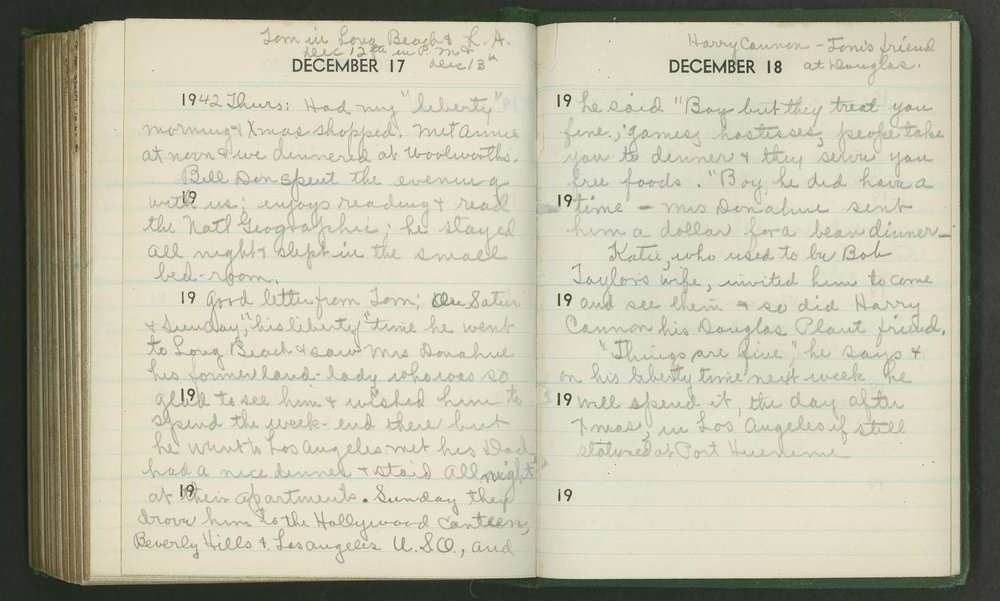 Tom in Long Beach & L. A.
Dec 12th in P.M &
DECEMBER 17 Dec 13th
1942 Thurs: Had my "liberty"
morning & Xmas shopped. Met Annie
at noon & we dinnered at Woolworths.
Bill Don spent the evening
19 with us; enjoys reading & read
the Natl Geographic; he stayed
all night & slept in the small
bed-room.
19 Good letter from Tom; On Satur
& Sunday, "his liberty" time he went
to Long Beach & saw Mrs Donahue
his former land-lady who was so
19 glad to see him & wished him to
spend the week-end there but
he went to Los Angeles met his Dad,
had a nice dinner & staid all night
19 at their apartments. Sunday they
drove him to the Hollywood Canteen,
Beverly Hills & Los angeles U.S.O., and
Harry Cannon - Tom's friend
DECEMBER 18 at Douglas.
19 he said "Boy but they treat you
fine.; games, hostesses, peope take
you to dinner & they serve you
free foods. "Boy he did have a
19 time - Mrs Donahue sent
him a dollar for a bean dinner—
Katie, who used to be Bob
Taylors wife, invited him to come
19 and see them & so did Harry
Cannon his Douglas Plant friend.
"Things are fine," he says &
on his liberty time next week he
19 will spend it, the day after
Xmas, in Los Angeles if still
stationed at Port Hueneme
19